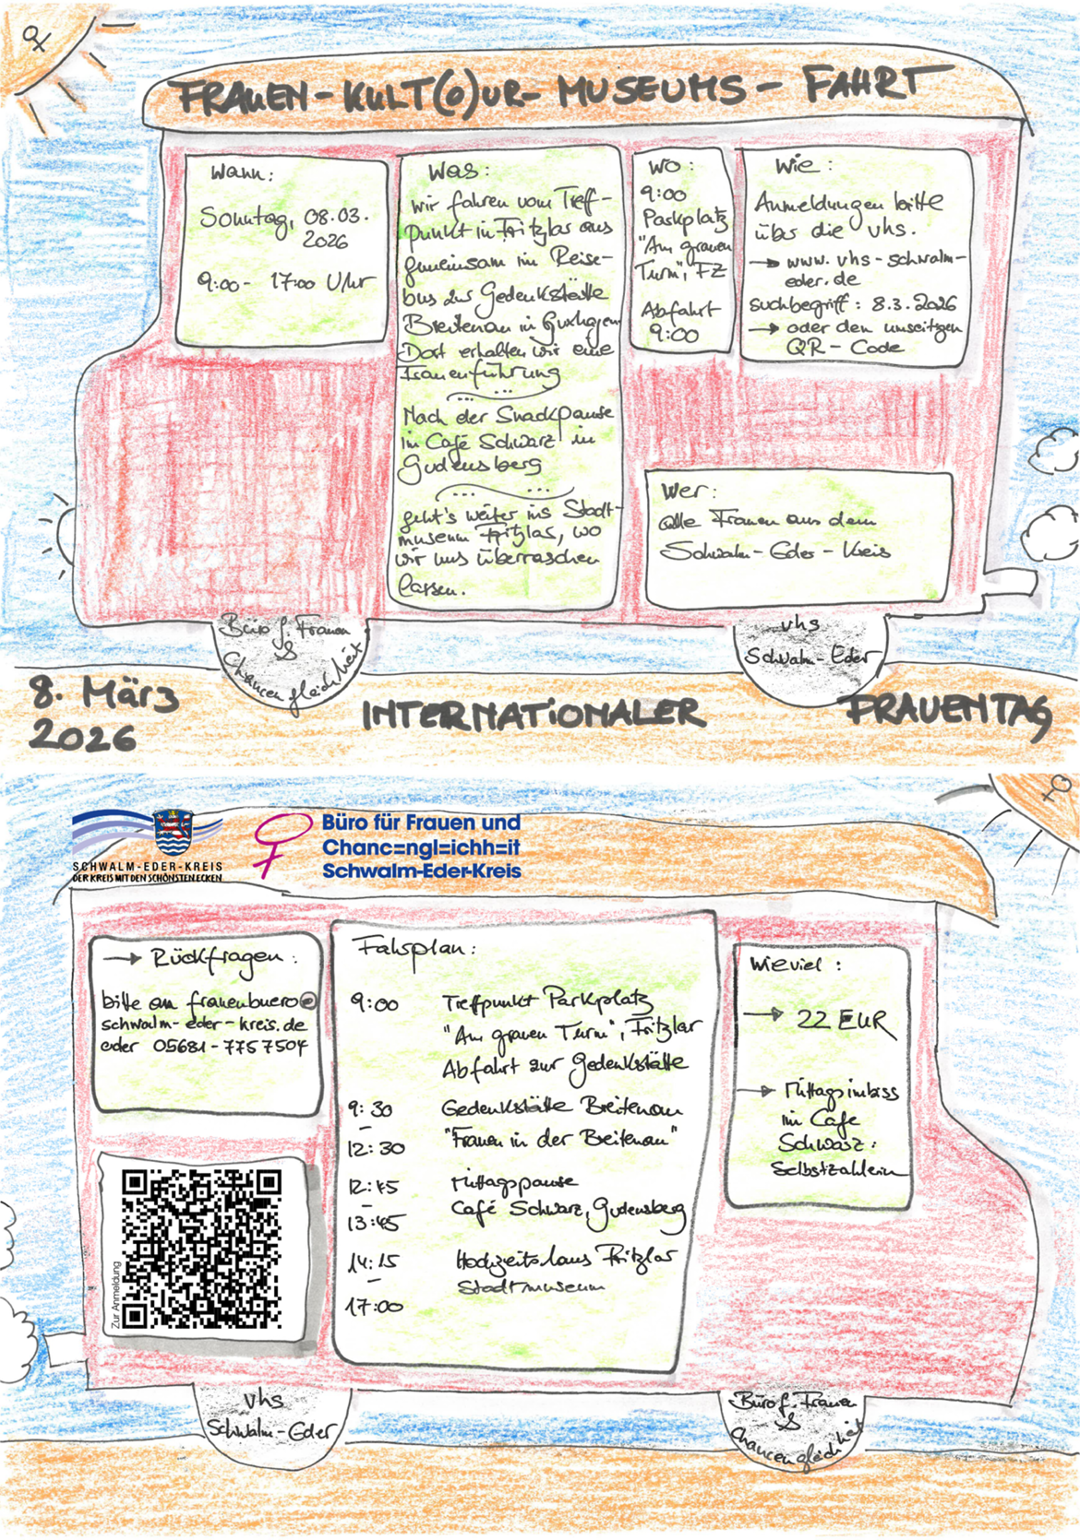 FRAUEN-KULT(O)UR-MUSEUMS-FAHRT
Wann:
Sonntag, 08.03.
2026
9:00- 17:00 Uhr
Was:
wir fahren vom Treff-
punkt in Fritzlar aus
gemeinsam im Reise-
bus zur Gedenkstätte
Breitenau in Guxhagen
Dort erhalten wir eine
Frauenführung
Nach der Snackpause
im Café Schwarz in
Gudensberg
geht's weiter ins Stadt-
museum Fritzlar, wo
wir uns überraschen
lassen.
Wo:
9:00
Parkplatz
"Am grauen
Turm", FZ
Abfahrt
9:00
Wie:
Anmeldungen bitte
über die vhs.
→ www.vhs-schwalm-
eder.de
suchbegriff: 8.3.2026
→ oder den umseitigen
QR-Code
Wer:
Alle Frauen aus dem
Schwalm-Eder-Kreis
Büro f. Frauen
&
Chancengleichheit
vhs
Schwalm-Eder
8. März
2026
INTERNATIONALER FRAUENTAG
SCHWALM-EDER-KREIS
DER KREIS MIT DEN SCHÖNSTEN ECKEN
Büro für Frauen und
Chanc=ngl=ichh=it
Schwalm-Eder-Kreis
→ Rückfragen:
bitte an frauenbuero@
schwalm-eder-kreis.de
oder 05681-7757504
Zur Anmeldung
Fahrplan:
9:00 Treffpunkt Parkplatz
"Am grauen Turm", Fritzlar
Abfahrt zur Gedenkstätte
9:30 Gedenkstätte Breitenau
-
12:30 "Frauen in der Breitenau"
12:45 Mittagspause
-
13:45 Café Schwarz, Gudensberg
14:15 Hochzeitshaus Fritzlar
- Stadtmuseum
17:00
Wieviel:
→ 22 EUR
→ Mittagsimbiss
im Cafe
Schwarz:
Selbstzahlerin
vhs
Schwalm-Eder
Büro f. Frauen
&
Chancengleichheit